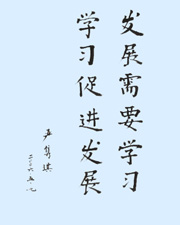 发展需要学习
学习促进发展